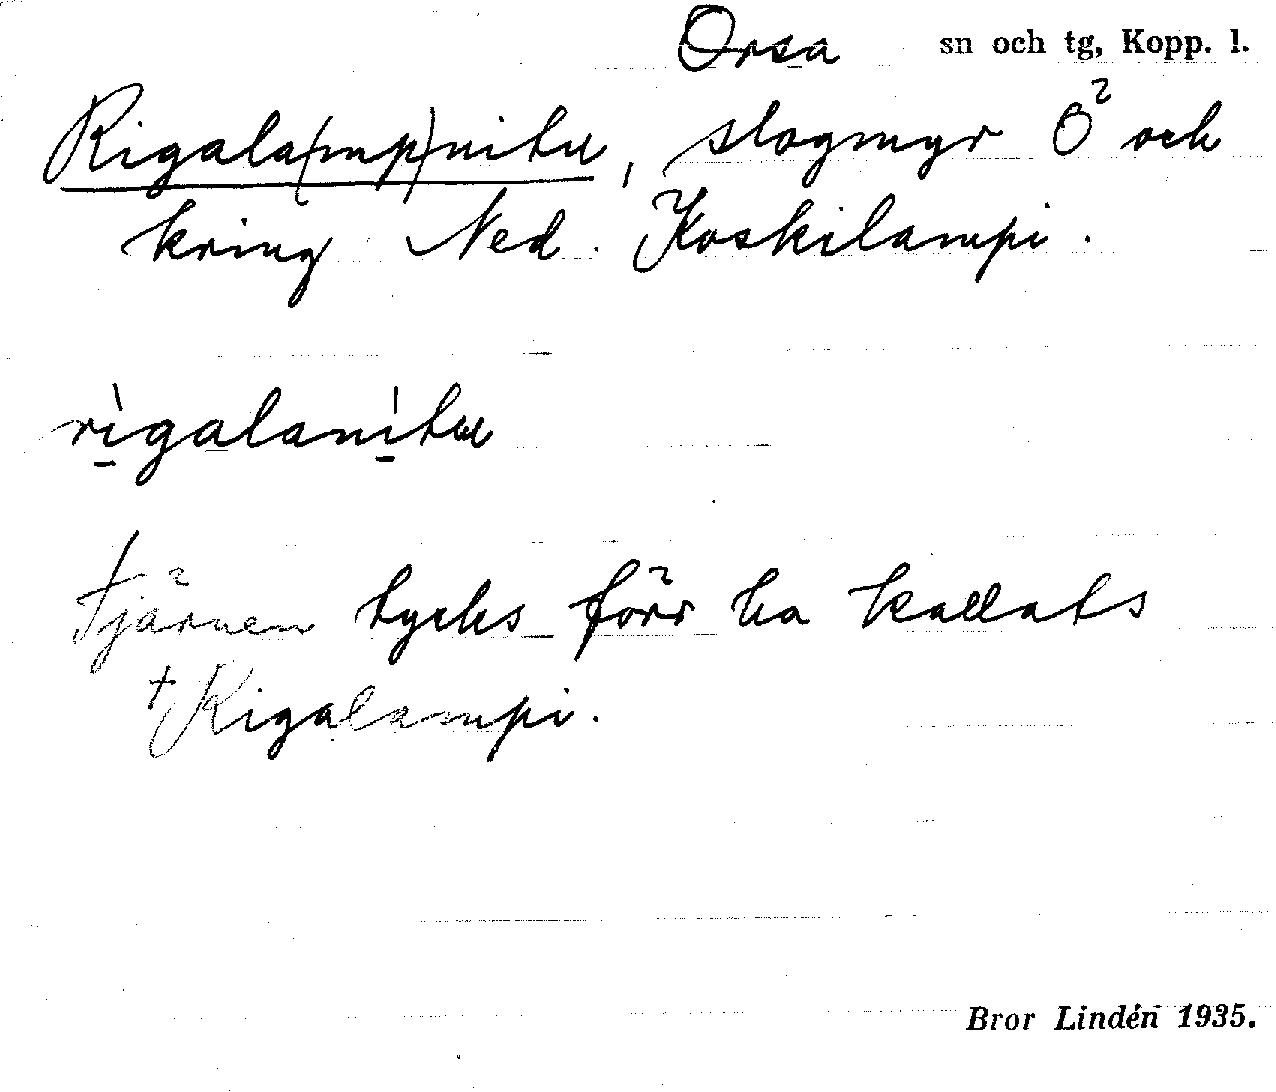 Orsa sn och tg, Kopp. l.
Rigala(mp)nitu, slogmyr Ö och
kring Ned. Koskilampi.
rìgalanìtu
Tjärnen tycks förr ha kallats
†Rigalampi.
Bror Lindén 1935.